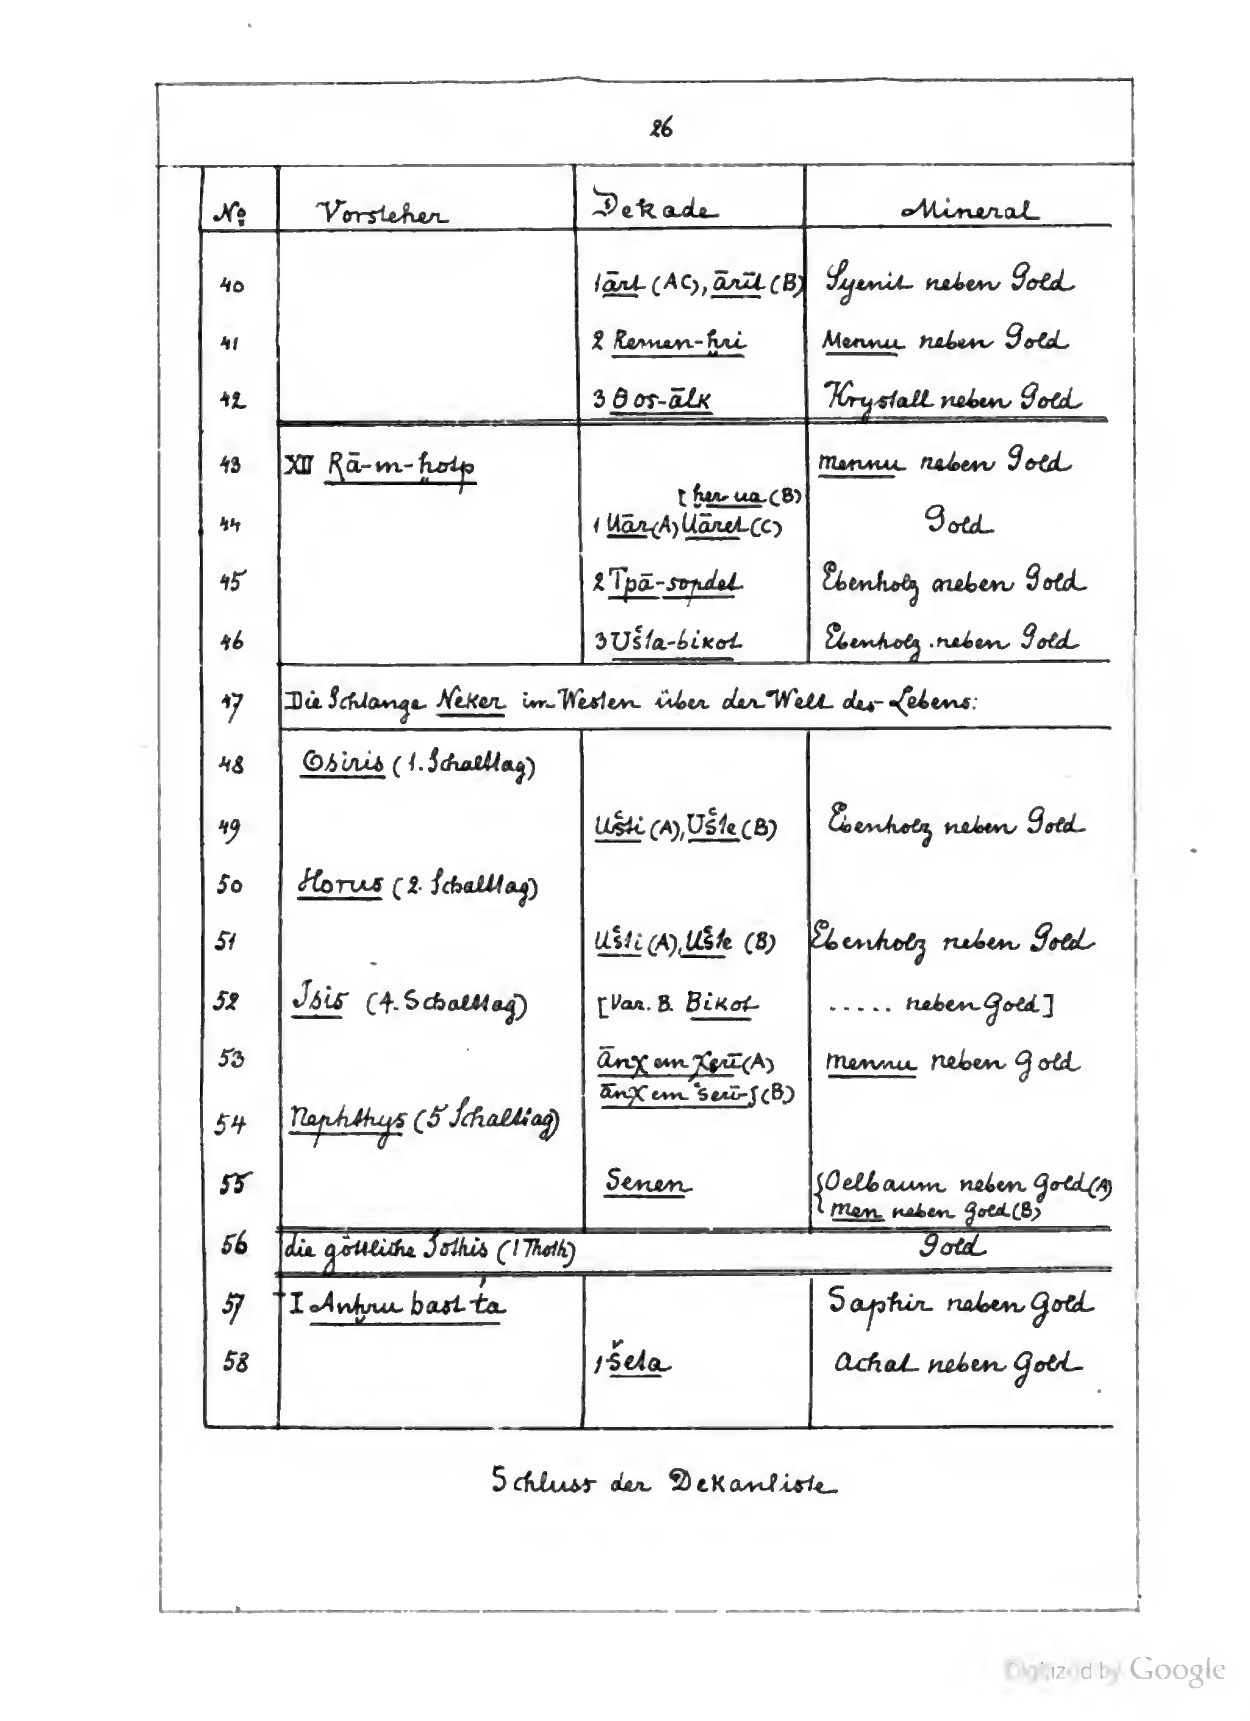 26
No Vorsteher Dekade Mineral
40 1 ārt (AC), ārit (B) Syenit neben Gold
41 2 Remen-ḥri Mennu neben Gold
42 3 θos-ālk Krystall neben Gold
43 XII Rā-m-ḥotp mennu neben Gold
[ḥer-ua (B)
44 1 Uār (A) Uāret (C) Gold
45 2 Tpā-sopdet Ebenholz neben Gold
46 3 Ušta-bikot Ebenholz neben Gold
47 Die Schlange Neker im Westen über der Welt des Lebens:
48 Osiris (1. Schalttag)
49 Ušti (A), Ušte (B) Ebenholz neben Gold
50 Horus (2. Schalttag)
51 Ušti (A), Ušte (B) Ebenholz neben Gold
52 Isis (4. Schalttag) [Var. B. Bikot ..... neben Gold]
53 ānχ em χerū (A) mennu neben Gold
ānχ em serū-f (B)
54 Nephthys (5 Schalttag)
55 Senen {Oelbaum neben Gold (A)
men neben Gold (B)
56 die göttliche Sothis (1 Thoth) Gold
57 I Anḥru bast ta Saphir neben Gold
58 1 šeta Achat neben Gold
Schluss der Dekanliste
Digitized by Google